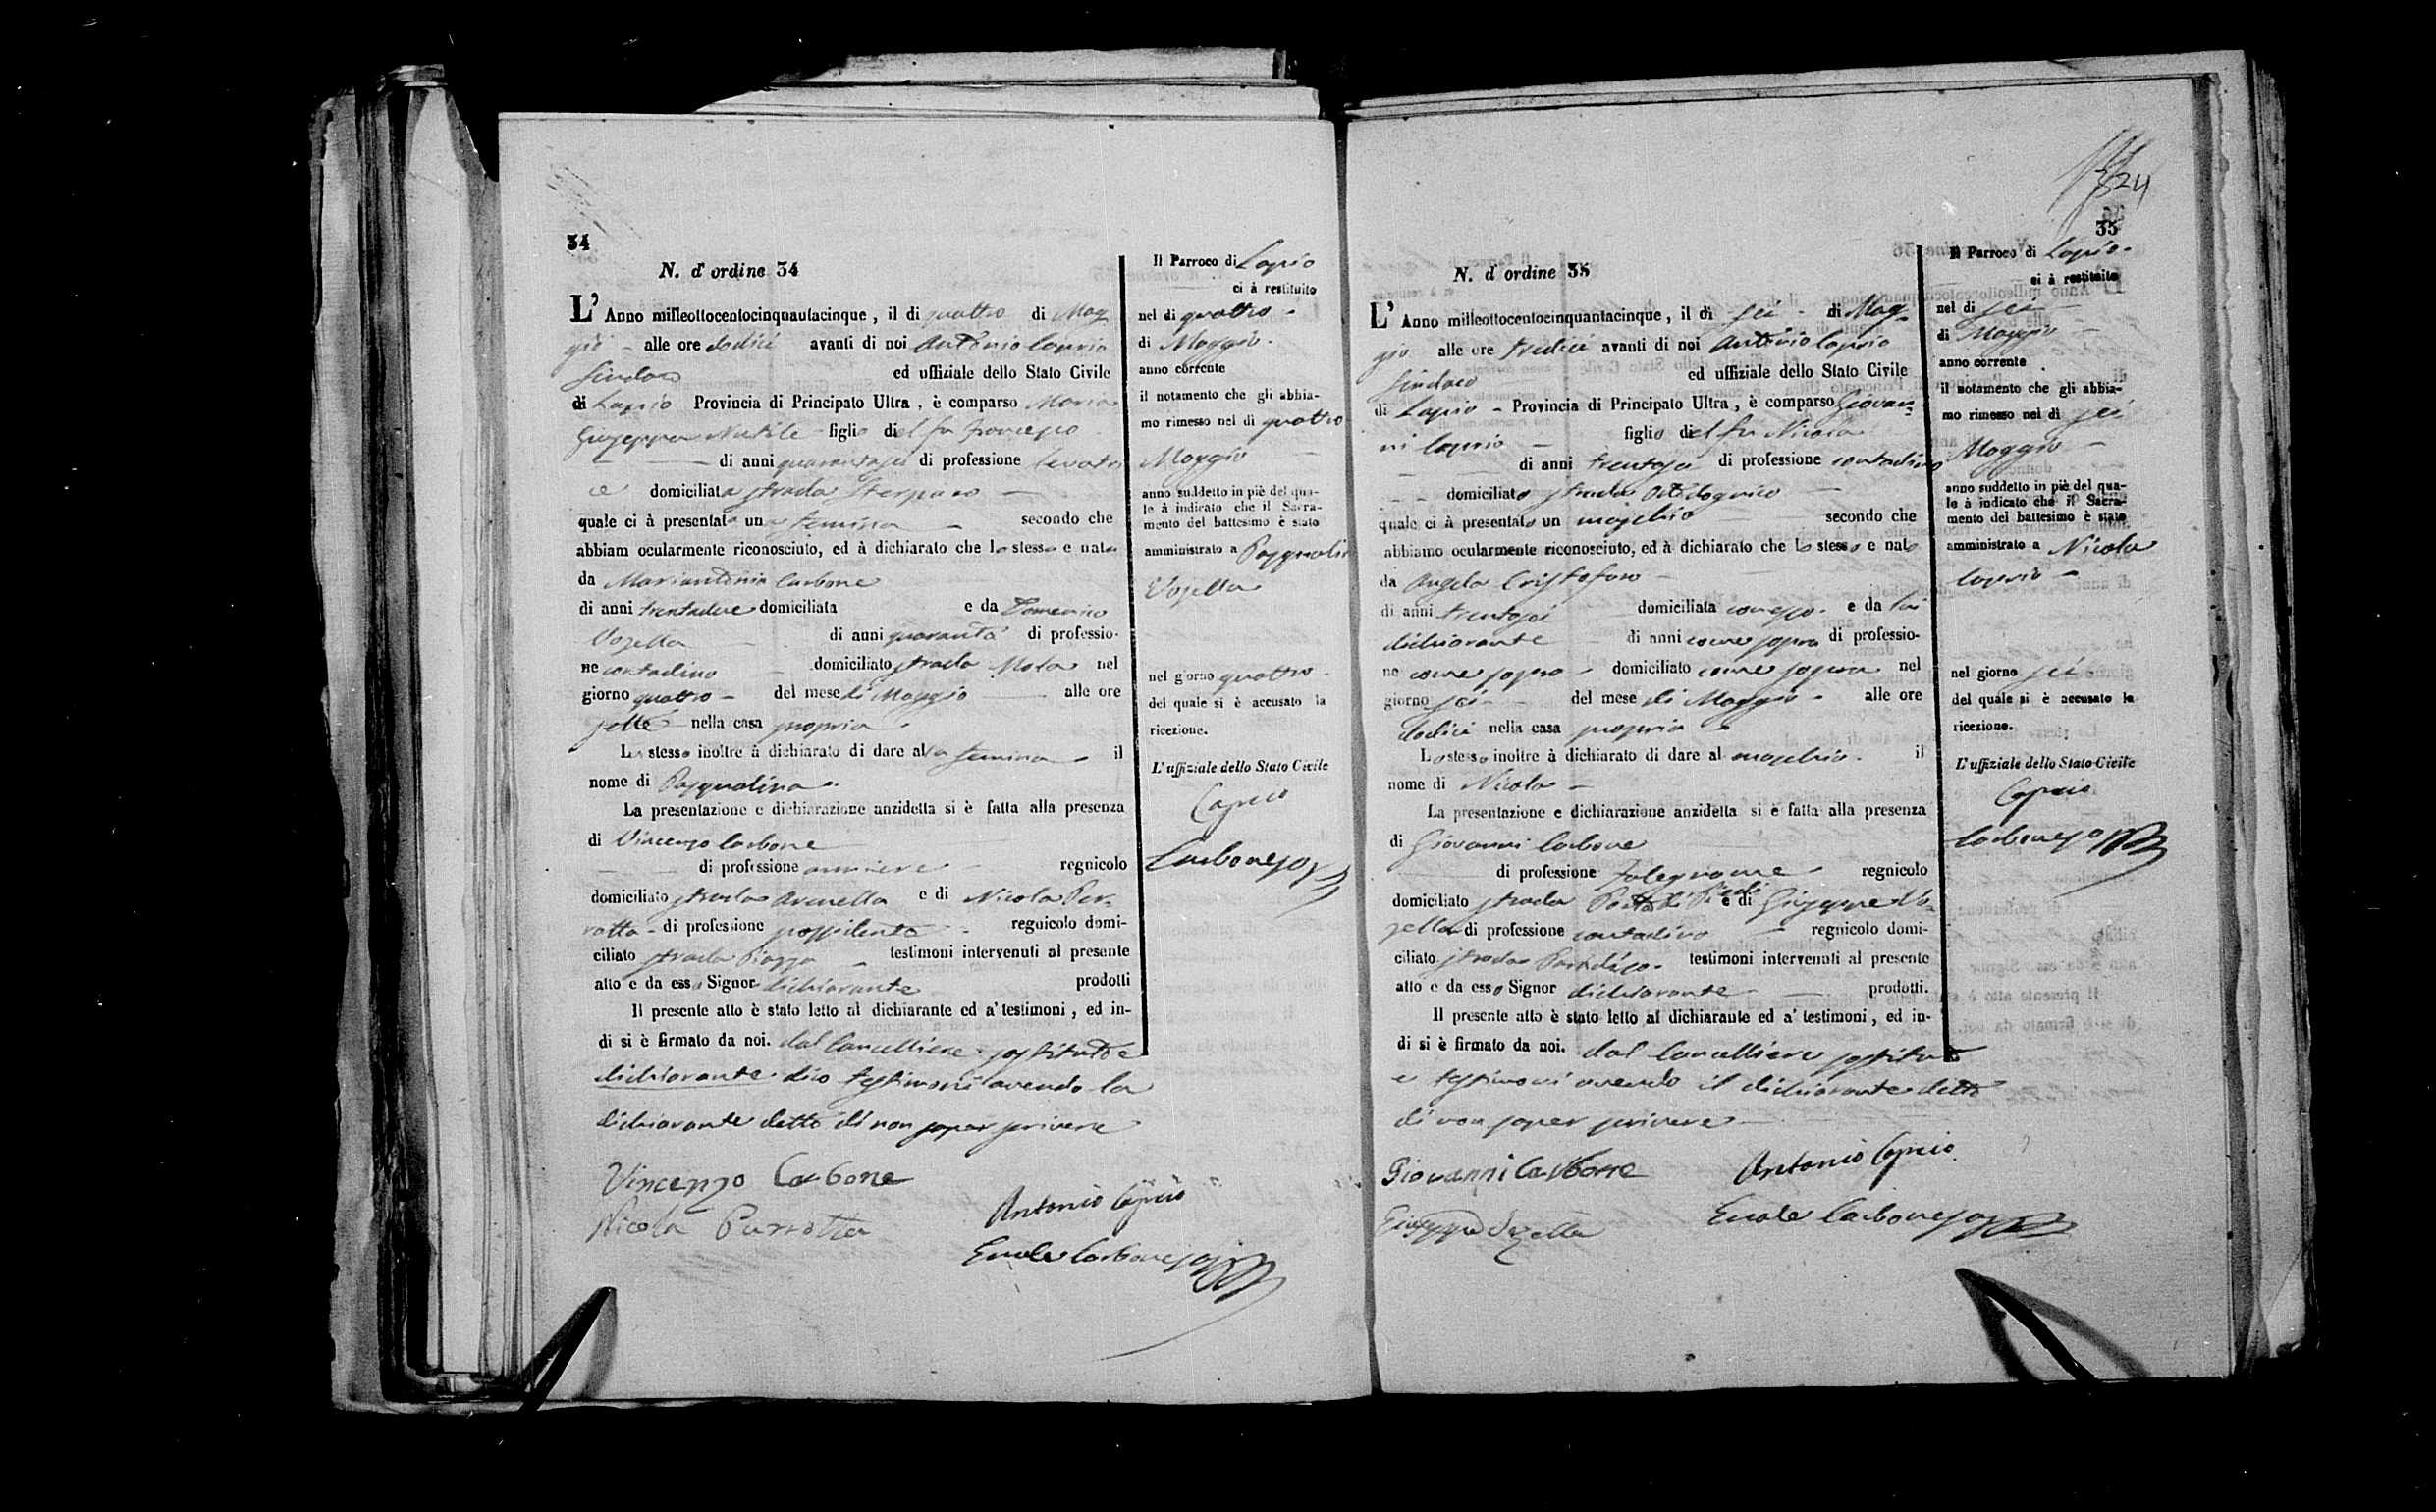 34
N. d'ordine 34
L'Anno milleottocentocinquantacinque, il di quattro di Mag
gio - alle ore dodici avanti di noi Antonio Caprio
Sindaco ed uffiziale dello Stato Civile
di Lapio Provincia di Principato Ultra, è comparso Maria
Giuseppa Nutile figlia del fu Francesco
di anni quarantasei di professione levatri
ce domiciliata strada
quale ci à presentato una femina - secondo che
abbiam ocularmente riconosciuto, ed à dichiarato che la stessa e nata
da Mariantonia Carbone
di anni trentadue domiciliata e da Domenico
Vozella - di anni quaranta di professio-
ne contadino - domiciliato strada nel
giorno quattro - del mese di Maggio - alle ore
sette nella casa propria.
La stessa inoltre à dichiarato di dare alla femina - il
nome di Pasqualina.
La presentazione e dichiarazione anzidetta si è fatta alla presenza
di Vincenzo Carbone
di professione regnicolo
domiciliato strada e di Nicola Per-
rotta - di professione possidente - regnicolo domi-
ciliato strada Piazza - testimoni intervenuti al presente
atto e da essa Signor dichiarante prodotti
Il presente atto è stato letto al dichiarante ed a' testimoni, ed in-
di si è firmato da noi. dal Cancelliere sostituto e
dichiarante testimoni avendo la
dichiarante detto di non saper scrivere
Vincenzo Carbone
Nicola Perrotta
Antonio Caprio
Carbone
Il Parroco di Lapio
ci à restituito
nel di quattro -
di Maggio.
anno corrente
il notamento che gli abbia-
mo rimesso nel di quattro
Maggio -
anno suddetto in piè del qua-
le à indicato che il Sacra-
mento del battesimo è stato
amministrato a Pasqualina
Vozella
nel giorno quattro -
del quale si è accusato la
ricezione.
L'uffiziale dello Stato Civile
Caprio
Carbone
24
35
N. d'ordine 35
L'Anno milleottocentocinquantacinque, il di sei - di Mag-
gio alle ore tredici avanti di noi Antonio Caprio
Sindaco ed uffiziale dello Stato Civile
di Lapio - Provincia di Principato Ultra, è comparso Giovan-
ni Caprio - figlio del fu Nicola
di anni trentasei di professione contadino
domiciliato strada
quale ci à presentato un maschio - secondo che
abbiamo ocularmente riconosciuto, ed à dichiarato che lo stesso e nato
da Angela Cristofaro -
di anni trentasei domiciliata con esso. e da lui
dichiarante di anni come sopra di professio-
ne come sopra - domiciliato come sopra nel
giorno sei - del mese di Maggio - alle ore
dodici nella casa propria -
Lo stesso inoltre à dichiarato di dare al maschio. il
nome di Nicola -
La presentazione e dichiarazione anzidetta si è fatta alla presenza
di Giovanni Carbone
di professione falegname regnicolo
domiciliato strada e di Giuseppe Vo-
zella di professione contadino - regnicolo domi-
ciliato strada Paradiso. testimoni intervenuti al presente
atto e da esso Signor dichiarante - prodotti.
Il presente atto è stato letto al dichiarante ed a' testimoni, ed in-
di si è firmato da noi. dal Cancelliere sostituto
e testimoni avendo il dichiarante detto
di non saper scrivere
Giovanni Carbone
Giuseppe Vozella
Antonio Caprio
Carbone
Il Parroco di Lapio -
ci à restituito
nel di sei -
di Maggio -
anno corrente
il notamento che gli abbia-
mo rimesso nel di sei
Maggio -
anno suddetto in piè del qua-
le à indicato che il Sacra-
mento del battesimo è stato
amministrato a Nicola
Caprio -
nel giorno sei
del quale si è accusato la
ricezione.
L'uffiziale dello Stato Civile
Caprio
Carbone